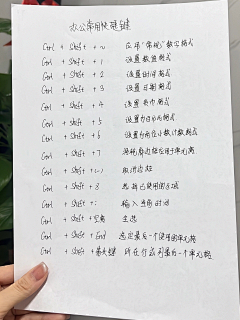 办公常用快捷键
Ctrl + Shift + ~ 应用"常规"数字格式
Ctrl + Shift + 1 设置数值格式
Ctrl + Shift + 2 设置时间格式
Ctrl + Shift + 3 设置日期格式
Ctrl + Shift + 4 设置货币格式
Ctrl + Shift + 5 设置为百分比格式
Ctrl + Shift + 6 设置为科学计数格式
Ctrl + Shift + 7 将外框边框应用于单元格
Ctrl + Shift + (-) 取消边框
Ctrl + Shift + 8 选择已使用的区域
Ctrl + Shift + ; 输入当前时间
Ctrl + Shift + 空格 全选
Ctrl + Shift + End 选定最后一个使用的单元格
Ctrl + Shift + 箭头键 所在行或列最后一个单元格